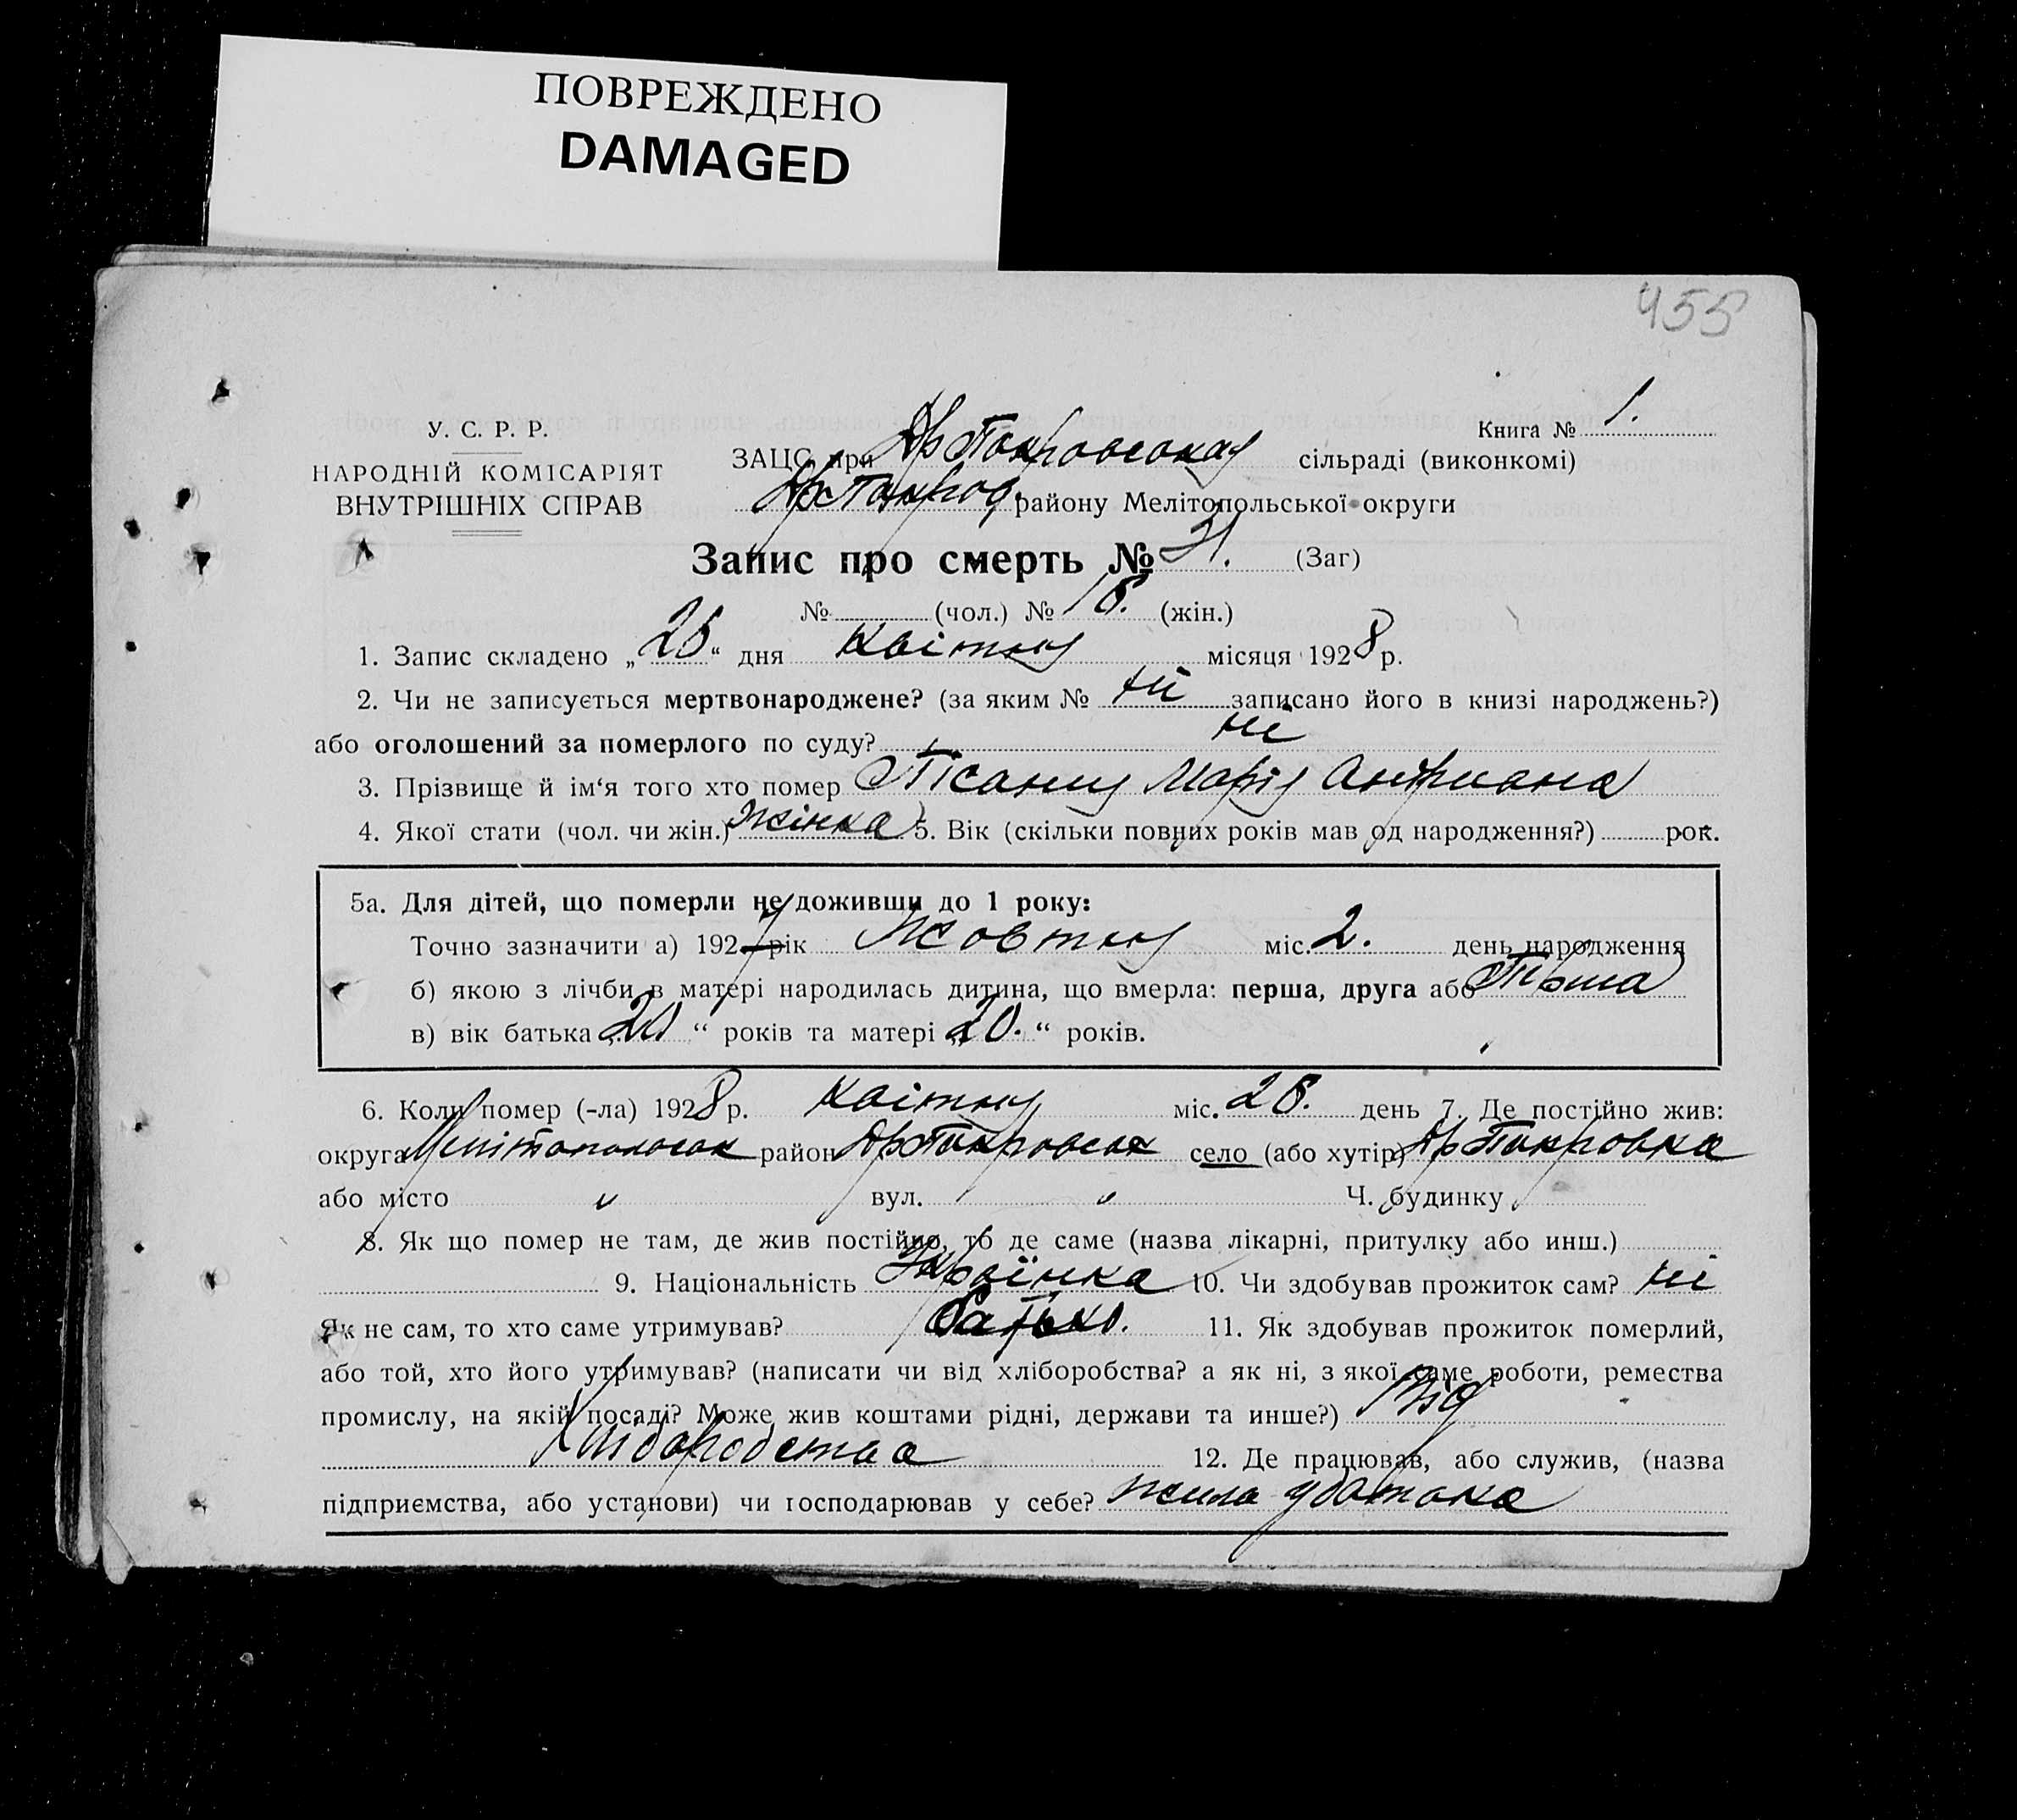 ПОВРЕЖДЕНО
DAMAGED
455
Книга № 1.
У. С. Р. Р.
НАРОДНІЙ КОМІСАРІЯТ
ВНУТРІШНІХ СПРАВ
ЗАЦС при сільраді (виконкомі)
району Мелітопольської округи
Запис про смерть № 31. (Заг)
№ (чол.) № 16. (жін.)
1. Запис складено „26“ дня квітня місяця 1928 р.
2. Чи не записується мертвонароджене? (за яким № ні записано його в книзі народжень?)
або оголошений за померлого по суду? ні
3. Прізвище й ім‘я того хто помер Пісаная Марія
4. Якої стати (чол. чи жін.) жінка 5. Вік (скільки повних років мав од народження?) рок.
5а. Для дітей, що померли не доживши до 1 року:
Точно зазначити а) 1927 рік Жовтня міс. 2. день народження
б) якою з лічби в матері народилась дитина, що вмерла: перша, друга або Перша
в) вік батька „20“ років та матері „20.“ років.
6. Коли помер (-ла) 1928 р. квітня міс. день 7. Де постійно жив:
округа район село (або хутір)
або місто " вул. " Ч. будинку
8. Як що помер не там, де жив постійно, то де саме (назва лікарні, притулку або инш.)
9. Національність Українка 10. Чи здобував прожиток сам? ні
Як не сам, то хто саме утримував? батько. 11. Як здобував прожиток померлий,
або той, хто його утримував? (написати чи від хліборобства? а як ні, з якої саме роботи, ремества
промислу, на якій посаді? Може жив коштами рідні, держави та инше?) Від
Хліборобства 12. Де працював, або служив, (назва
підприємства, або установи) чи господарював у себе? жила у батька